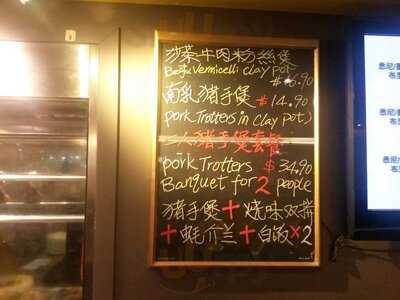 沙茶牛肉粉丝煲
Beef Vermicelli clay pot
$16.90
南乳猪手煲 $14.90
pork Trotters in clay pot)
二人猪手煲套餐
pork Trotters $34.90
Banquet for 2 people
猪手煲+烧味双拼
+蚝介兰+白饭×2